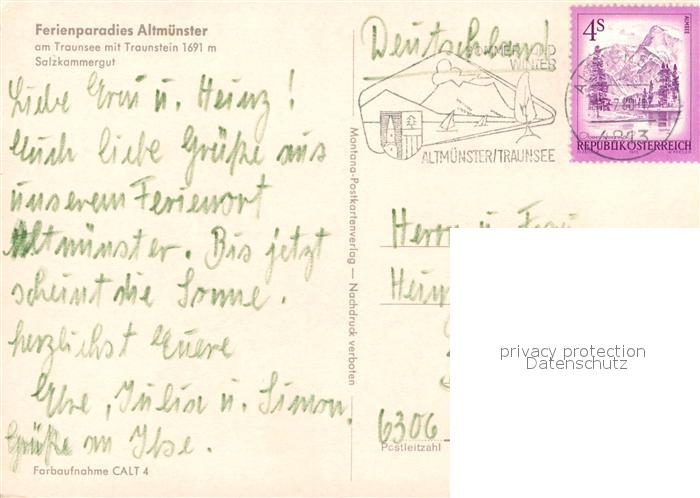 Ferienparadies Altmünster
am Traunsee mit Traunstein 1691 m
Salzkammergut
Liebe Erai u. Heinz!
Euch liebe Grüße aus
unserem Ferienort
Altmünster. Bis jetzt
scheint die Sonne.
herzlichst Euere
Else, Julia u. Simon.
Grüße an Ilse.
Farbaufnahme CALT 4
Montana-Postkartenverlag — Nachdruck verboten
Deutschland
SOMMER UND
WINTER
ALTMÜNSTER/TRAUNSEE
4S
ALMSEE
4813
REPUBLIK ÖSTERREICH
Herrn u. Frau
6306
Postleitzahl
privacy protection
Datenschutz